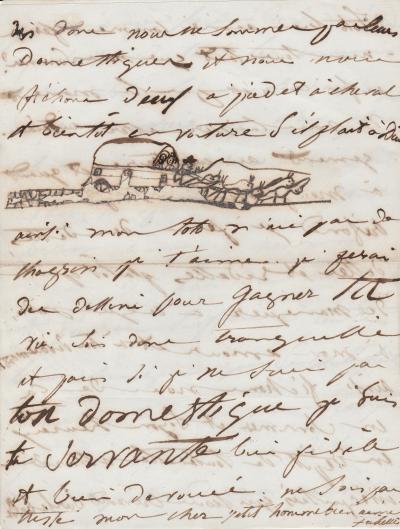 dis donc nous ne sommes pas leurs
domestiques et nous nous
fichons d'eux à pied et à cheval
et bientôt en voiture s'il plait à Dieu
ainsi mon toto n'aie pas de
chagrin je t'aime. je ferai
des dessins pour gagner ta
vie sois donc tranquille
et puis si je ne suis pas
ton domestique je suis
ta servante bien fidèle
et bien dévouée. ne sois pas
triste mon cher petit homme bien aimé
Juliette